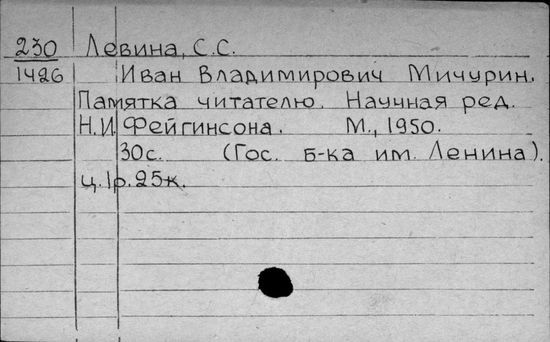 230 Левина, С.С.
1426 Иван Владимирович Мичурин.
Памятка читателю. Научная ред.
Н.И. Фейгинсона. М., 1950.
30с. (Гос. б-ка им. Ленина).
ц. 1р. 25к.